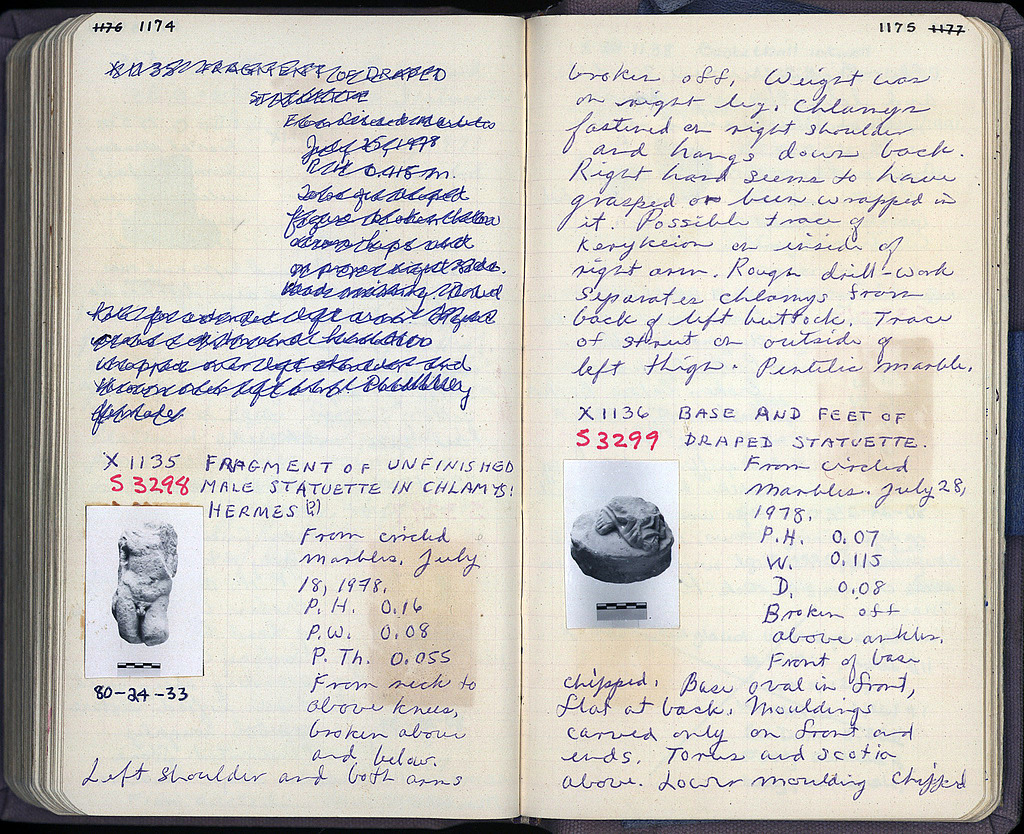 1176 1174
X 1135 FRAGMENT OF DRAPED
STATUETTE
From circled marbles
July 25, 1978
P.H. 0.415 m.
figure broken below
hips and
on proper right side.
X 1135 FRAGMENT OF UNFINISHED
S 3298 MALE STATUETTE IN CHLAMYS:
HERMES (?)
From circled
marbles. July
18, 1978.
P. H. 0.16
P.W. 0.08
P. Th. 0.055
From neck to
above knees,
broken above
and below.
80-24-33
Left shoulder and both arms
1175 1177
broken off. Weight was
on right leg. Chlamys
fastened on right shoulder
and hangs down back.
Right hand seems to have
grasped or been wrapped in
it. Possible trace of
kerykeion on inside of
right arm. Rough drill-work
separates chlamys from
back of left buttock. Trace
of strut on outside of
left thigh. Pentelic marble.
X 1136 BASE AND FEET OF
S 3299 DRAPED STATUETTE.
From circled
marbles. July 28,
1978.
P.H. 0.07
W. 0.115
D. 0.08
Broken off
above ankles.
Front of base
chipped. Base oval in front,
flat at back. Mouldings
carved only on front and
ends. Torus and scotia
above. Lower moulding chipped